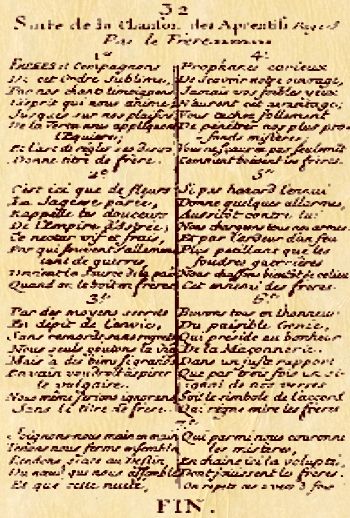 32
Suite de la Chanson des Aprentifs
Par le Frere
1.
FRERES et Compagnons
De cet Ordre Sublime,
Par nos chants temoignons
L'esprit qui nous anime
Jusques sur nos plaisirs
De la Vertu nous appliquons
l'Equere;
Et l'art de régler ses desirs
Donne titre de frere.
2.
C'est ici que de fleurs
La Sagesse parée,
Rappelle les douceurs
De l'Empire d'Astrée;
Ce nectar vif et frais,
Par qui souvent s'allument
tant de guerres,
Devient la Source de la paix
Quand on le boit en freres
3.
Par des moyens secrets
En dépit de l'envie,
Sans remords sans regrets
Nous seuls goutons la Vie
Mais à des biens si grands
En vain voudroit aspirer
le vulgaire.
Nous mêmes serions ignorans
Sans le titre de frere.
4.
Prophanes curieux
De Scavoir notre ouvrage,
Jamais vos foibles yeux
N'auront cet avantage;
Vous tachez follement
De pénétrer nos plus pro-
fonds mistères,
Vous ne sçaurez pas seulement
Comment boivent les freres.
5.
Si par hazard l'ennui
Donne quelques allarmes,
Aussitôt contre lui
Nous chargeons tous nos armes
Et par l'ardeur d'un feu
Plus petillant que les
foudres guerrières
Nous chassons bientôt de ce lieu
Cet ennemi des freres.
6.
Buvons tous en l'honneur
Du paisible Genie,
Qui préside au bonheur
De la Maçonnerie.
Dans un juste rapport
Que par trois fois un si-
gnal de nos verres
Soit le simbole de l'accord
Qui règne entre les freres
7.
Joignons nous main en main
Tenons nous ferme ensemble
Rendons grace au Destin,
Du nœud qui nous assemble
Et que cette nuit,
Qui parmi nous couronne
les mistères,
Enchaine ici la volupté,
Dont jouissent les freres.
On repete ces 2 vers 3 fois
FIN.